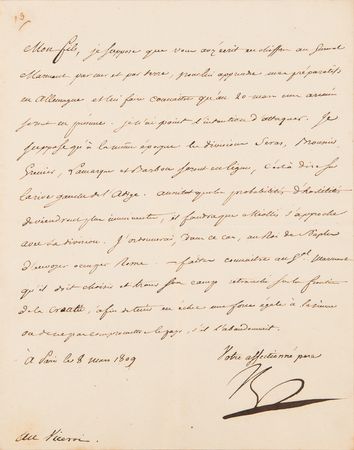 Mon fils, je suppose que vous avez écrit en chiffre au Général
Marmont par mer et par terre, pour lui apprendre mes préparatifs
en Allemagne et lui faire connaître qu'au 20 mars mes armées
seront en présence. je n'ai point l'intention d'attaquer. Je
suppose qu'à la même époque les divisions Seras, Broussier,
Grenier, Lamarque et Barbou seront en ligne, c'est à dire sur
la rive gauche de l'Adige. aussitôt que les probabilités d'hostilités
deviendront plus imminentes, il faudra que Miollis s'approche
avec sa division. J'ordonnerai, dans ce cas, au Roi de Naples
d'envoyer occuper Rome. — faites connaître au Gal Marmont
qu'il doit choisir et tracer son camp retranché sur la frontière
de la Croatie, afin de tenir en échec une force égale à la sienne
ou de ne pas compromettre le pays, s'il l'abandonnait.
à Paris le 8 mars 1809
Votre affectionné père
au Viceroi.